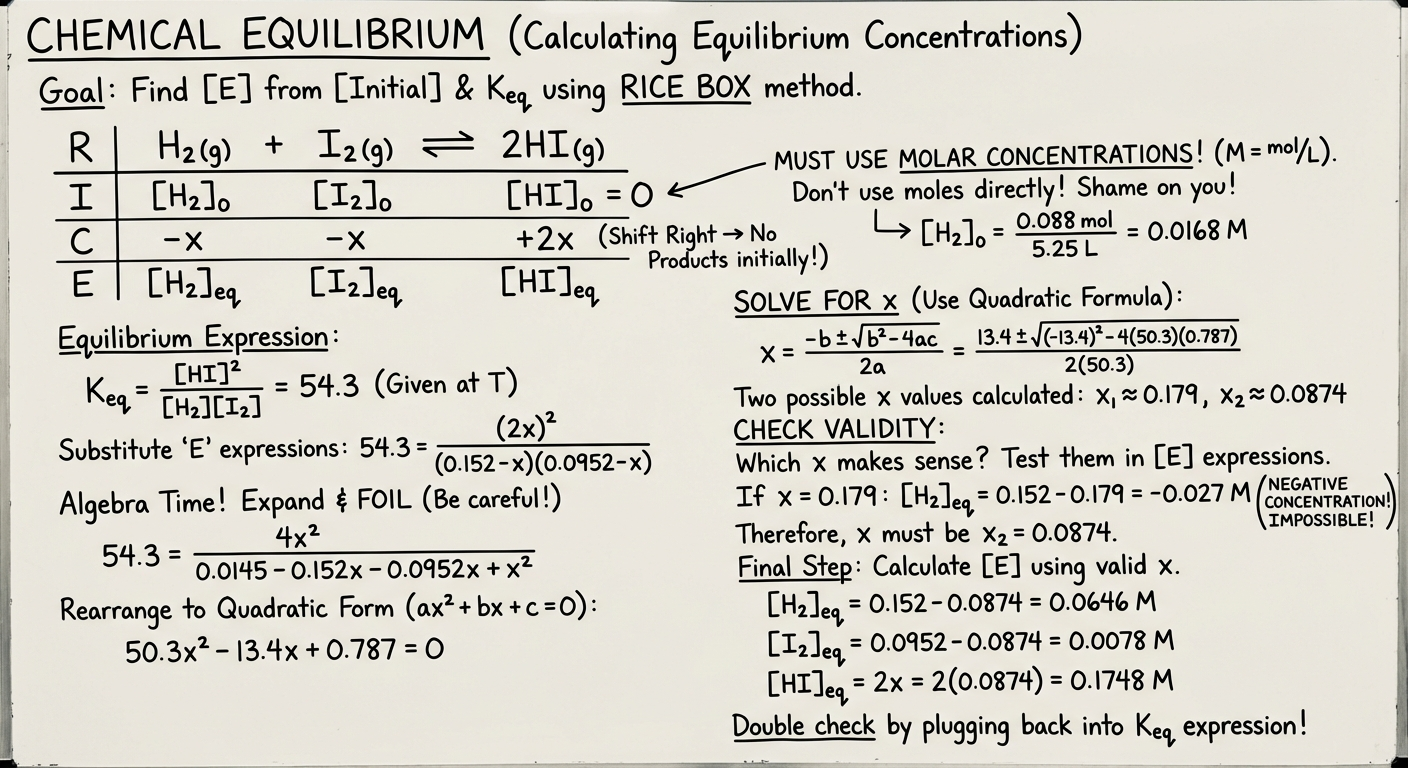 CHEMICAL EQUILIBRIUM (Calculating Equilibrium Concentrations)
Goal: Find [E] from [Initial] & Keq using RICE BOX method.
R | H₂(g) + I₂(g) ⇌ 2HI(g)
I | [H₂]₀ [I₂]₀ [HI]₀ = 0
C | -x -x +2x (Shift Right → No
Products initially!)
E | [H₂]eq [I₂]eq [HI]eq
MUST USE MOLAR CONCENTRATIONS! (M = mol/L).
Don't use moles directly! Shame on you!
↳ [H₂]₀ = 0.088 mol / 5.25 L = 0.0168 M
Equilibrium Expression:
Keq = [HI]² / [H₂][I₂] = 54.3 (Given at T)
Substitute 'E' expressions: 54.3 = (2x)² / (0.152-x)(0.0952-x)
Algebra Time! Expand & FOIL (Be careful!)
54.3 = 4x² / 0.0145 - 0.152x - 0.0952x + x²
Rearrange to Quadratic Form (ax² + bx + c = 0):
50.3x² - 13.4x + 0.787 = 0
SOLVE FOR x (Use Quadratic Formula):
x = -b ± √b² - 4ac / 2a = 13.4 ± √(-13.4)² - 4(50.3)(0.787) / 2(50.3)
Two possible x values calculated: x₁ ≈ 0.179, x₂ ≈ 0.0874
CHECK VALIDITY:
Which x makes sense? Test them in [E] expressions.
If x = 0.179: [H₂]eq = 0.152 - 0.179 = -0.027 M (NEGATIVE
CONCENTRATION!
IMPOSSIBLE!)
Therefore, x must be x₂ = 0.0874.
Final Step: Calculate [E] using valid x.
[H₂]eq = 0.152 - 0.0874 = 0.0646 M
[I₂]eq = 0.0952 - 0.0874 = 0.0078 M
[HI]eq = 2x = 2(0.0874) = 0.1748 M
Double check by plugging back into Keq expression!